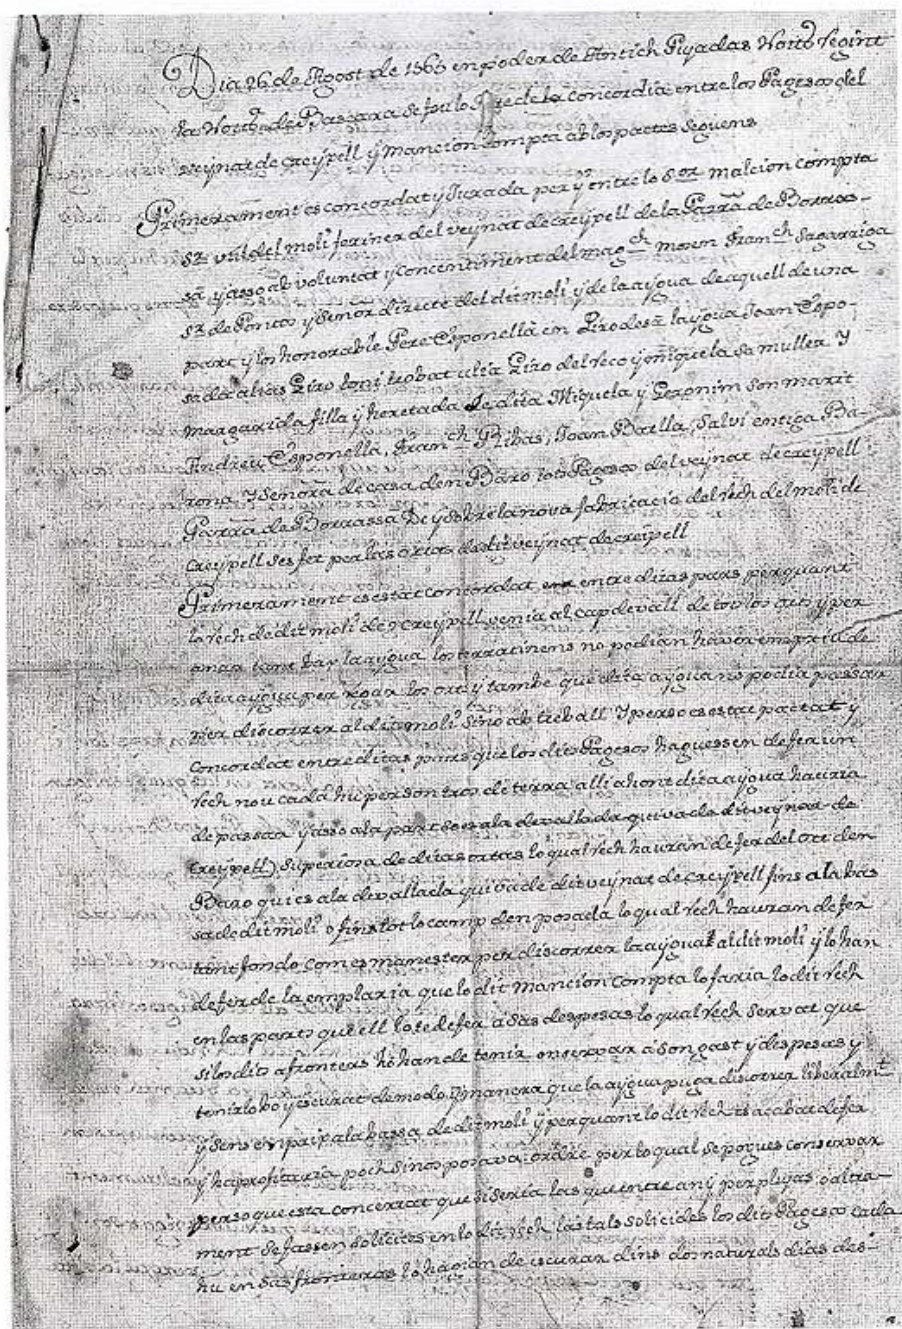 Dia 26 de Agost de 1565 en poder de Antich Pujadas Nott.º regint
la Nott.ª de Bascara se feu lo acte de la concordia entre los Pagesos del
veynat de creÿpell ÿ Mancion Compta ab los pactes seguens
Primerament es concordat y Jurada per ÿ entre lo S.or malcion compta
Sr. util del molí fariner del veynat de creÿpell de la Parrã de Borras-
sã y asso ab voluntat y concentiment del mag.ch mosen Fran.ch Sagarriga
Sr. de Pontos y Señor directe del dit molí y de la aygua de aquell de una
part y los honorable Pere Esponellã en Piro desã la ygua Joan Espo-
sada alias Piro del reco y miquela sa muller Y
Margarida filla y heretada de dita Miquela y Geronim son marit
Andreu Esponella, Fran.ch Ribas, Joan Batlla, Salvi Ba-
rona Y Señorã de casa den Baro tots Pagesos del veynat de creÿpell
Parrã de Borrassã De y Sobre la nova fabricacio del rech del molí de
Creÿpell ses fet per las ortas de dit veynat de creÿpell
Primerament es estat concordat entre ditas pars per quant
lo rech de dit molí de creÿpell venia al capdevall de tots los orts y per
anar tant bax la aygua los terratinens no podian haver empriu de
dita aygua per regar los orts y tambe que dita aygua no podia passar
ni en discorrer al dit molí sino ab treball Y perso es estat pactat y
Concordat entre ditas pars que los dits Pagesos haguessen de fer un
rech nou cada hu per son tros de terra alli ahont dita aygua hauria
de passar y asso a la part so es a la devallada qui va de dit veynat de
Creÿpell Superiora de ditas ortas lo qual rech hauran de fer del ort den
Baro qui es a la devallada qui va de dit veynat de creÿpell fins a la bas
sa de dit molí o fins tot lo camp den posada lo qual rech hauran de fer
tant fondo com es manester per discorrer la aygua al dit molí y lo han
de fer de la emplaria que lo dit Mancion Compta lo faria lo dit rech
en las parts que ell lo te de fer a sas despesas lo qual rech servat que
si los dits afronters ho han de tenir conservar a son gast y despesas y
tenirlo bo y escurat de modo y manera que la aygua puga discorrer liberalm.t
y sens empaix a la bassa de dit molí y per quant lo dit rech es acabat de fer
y haprofitaria poch sinos posava ordre per lo qual se pogues conservar
perso que esta concertat que si seria las que entre any per plujas o altra-
ment se fassen solicites en lo dit rech las tals solicides los dits Pagesos cada
hu en sas fronteras lo hagian de escurar dins dos naturals dias des-